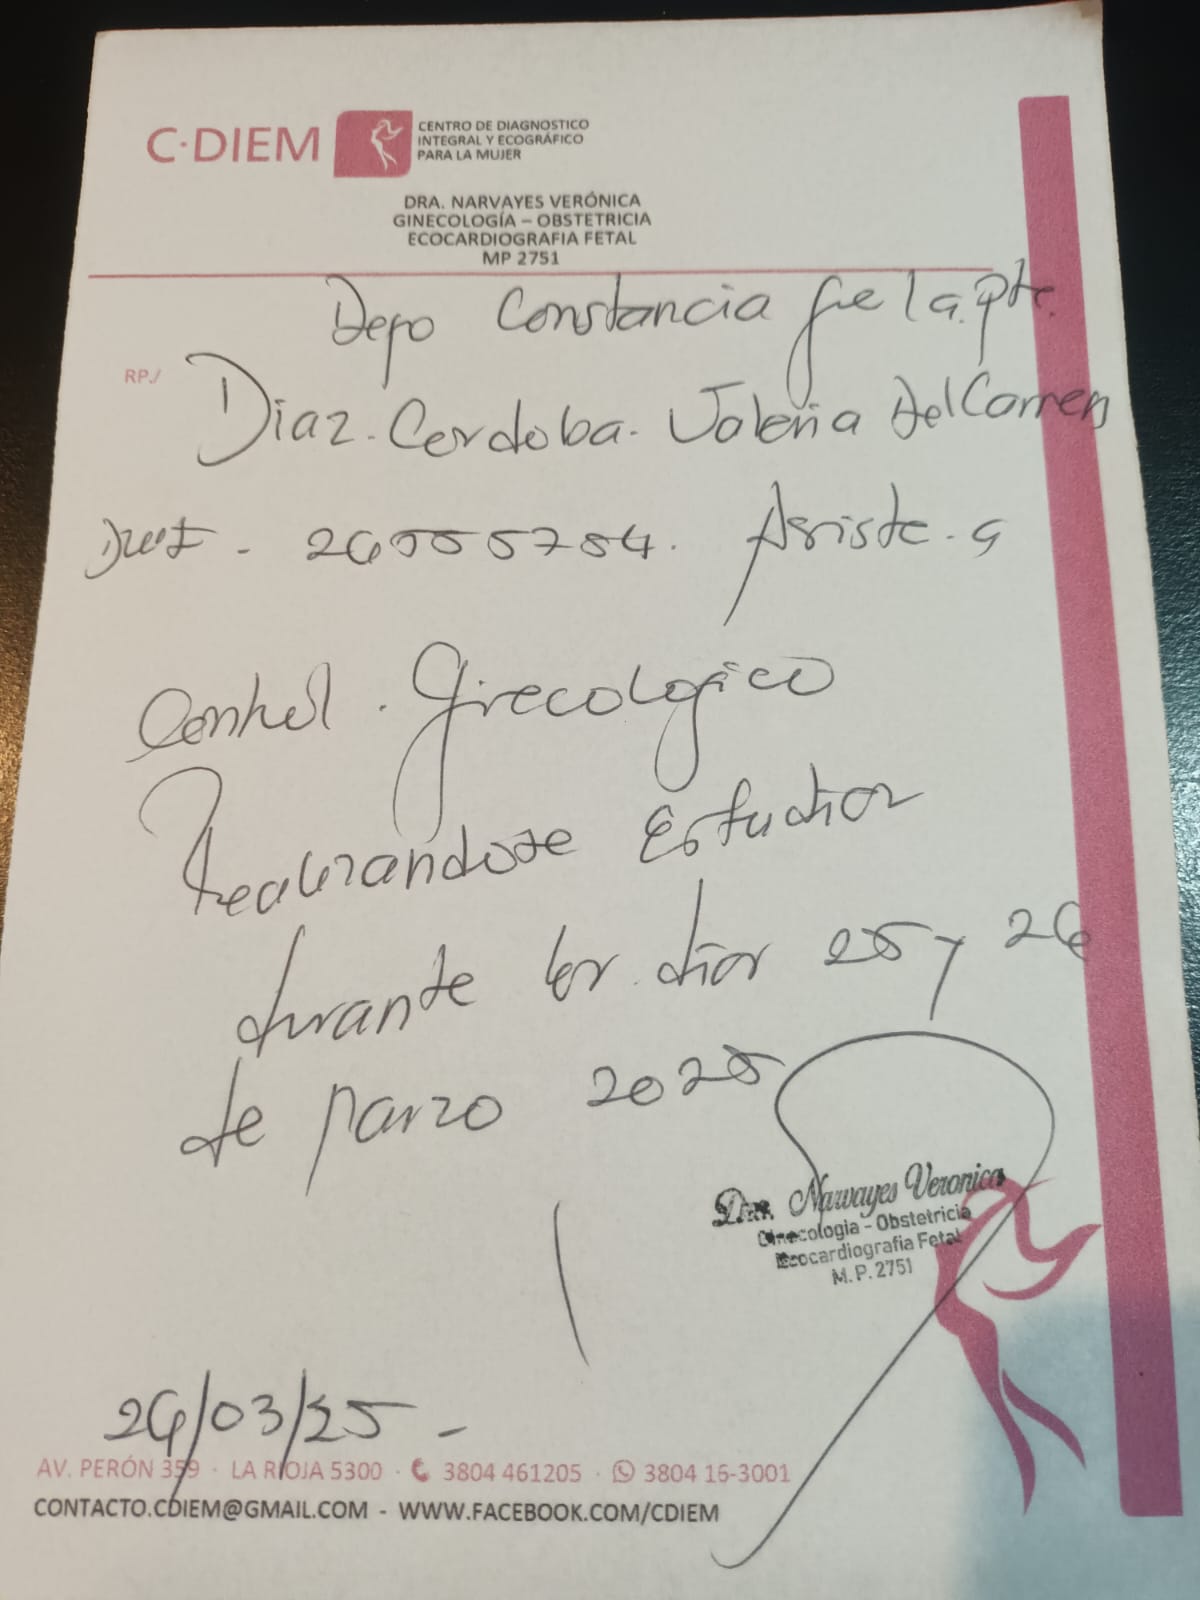 C·DIEM
CENTRO DE DIAGNOSTICO
INTEGRAL Y ECOGRÁFICO
PARA LA MUJER
DRA. NARVAYES VERÓNICA
GINECOLOGÍA – OBSTETRICIA
ECOCARDIOGRAFIA FETAL
MP 2751
Dejo Constancia que la pte.
RP./
Diaz. Cordoba. Valeria Del Carmen
DNI - 26555784. Asiste. a
Control. Ginecologico
Realizandose Estudios
durante los dias 25 y 26
de Marzo 2025
Dra. Narvayes Veronica
Ginecologia - Obstetricia
Ecocardiografia Fetal
M.P. 2751
26/03/25 -
AV. PERÓN 359 · LA RIOJA 5300 · 3804 461205 · 3804 16-3001
CONTACTO.CDIEM@GMAIL.COM - WWW.FACEBOOK.COM/CDIEM